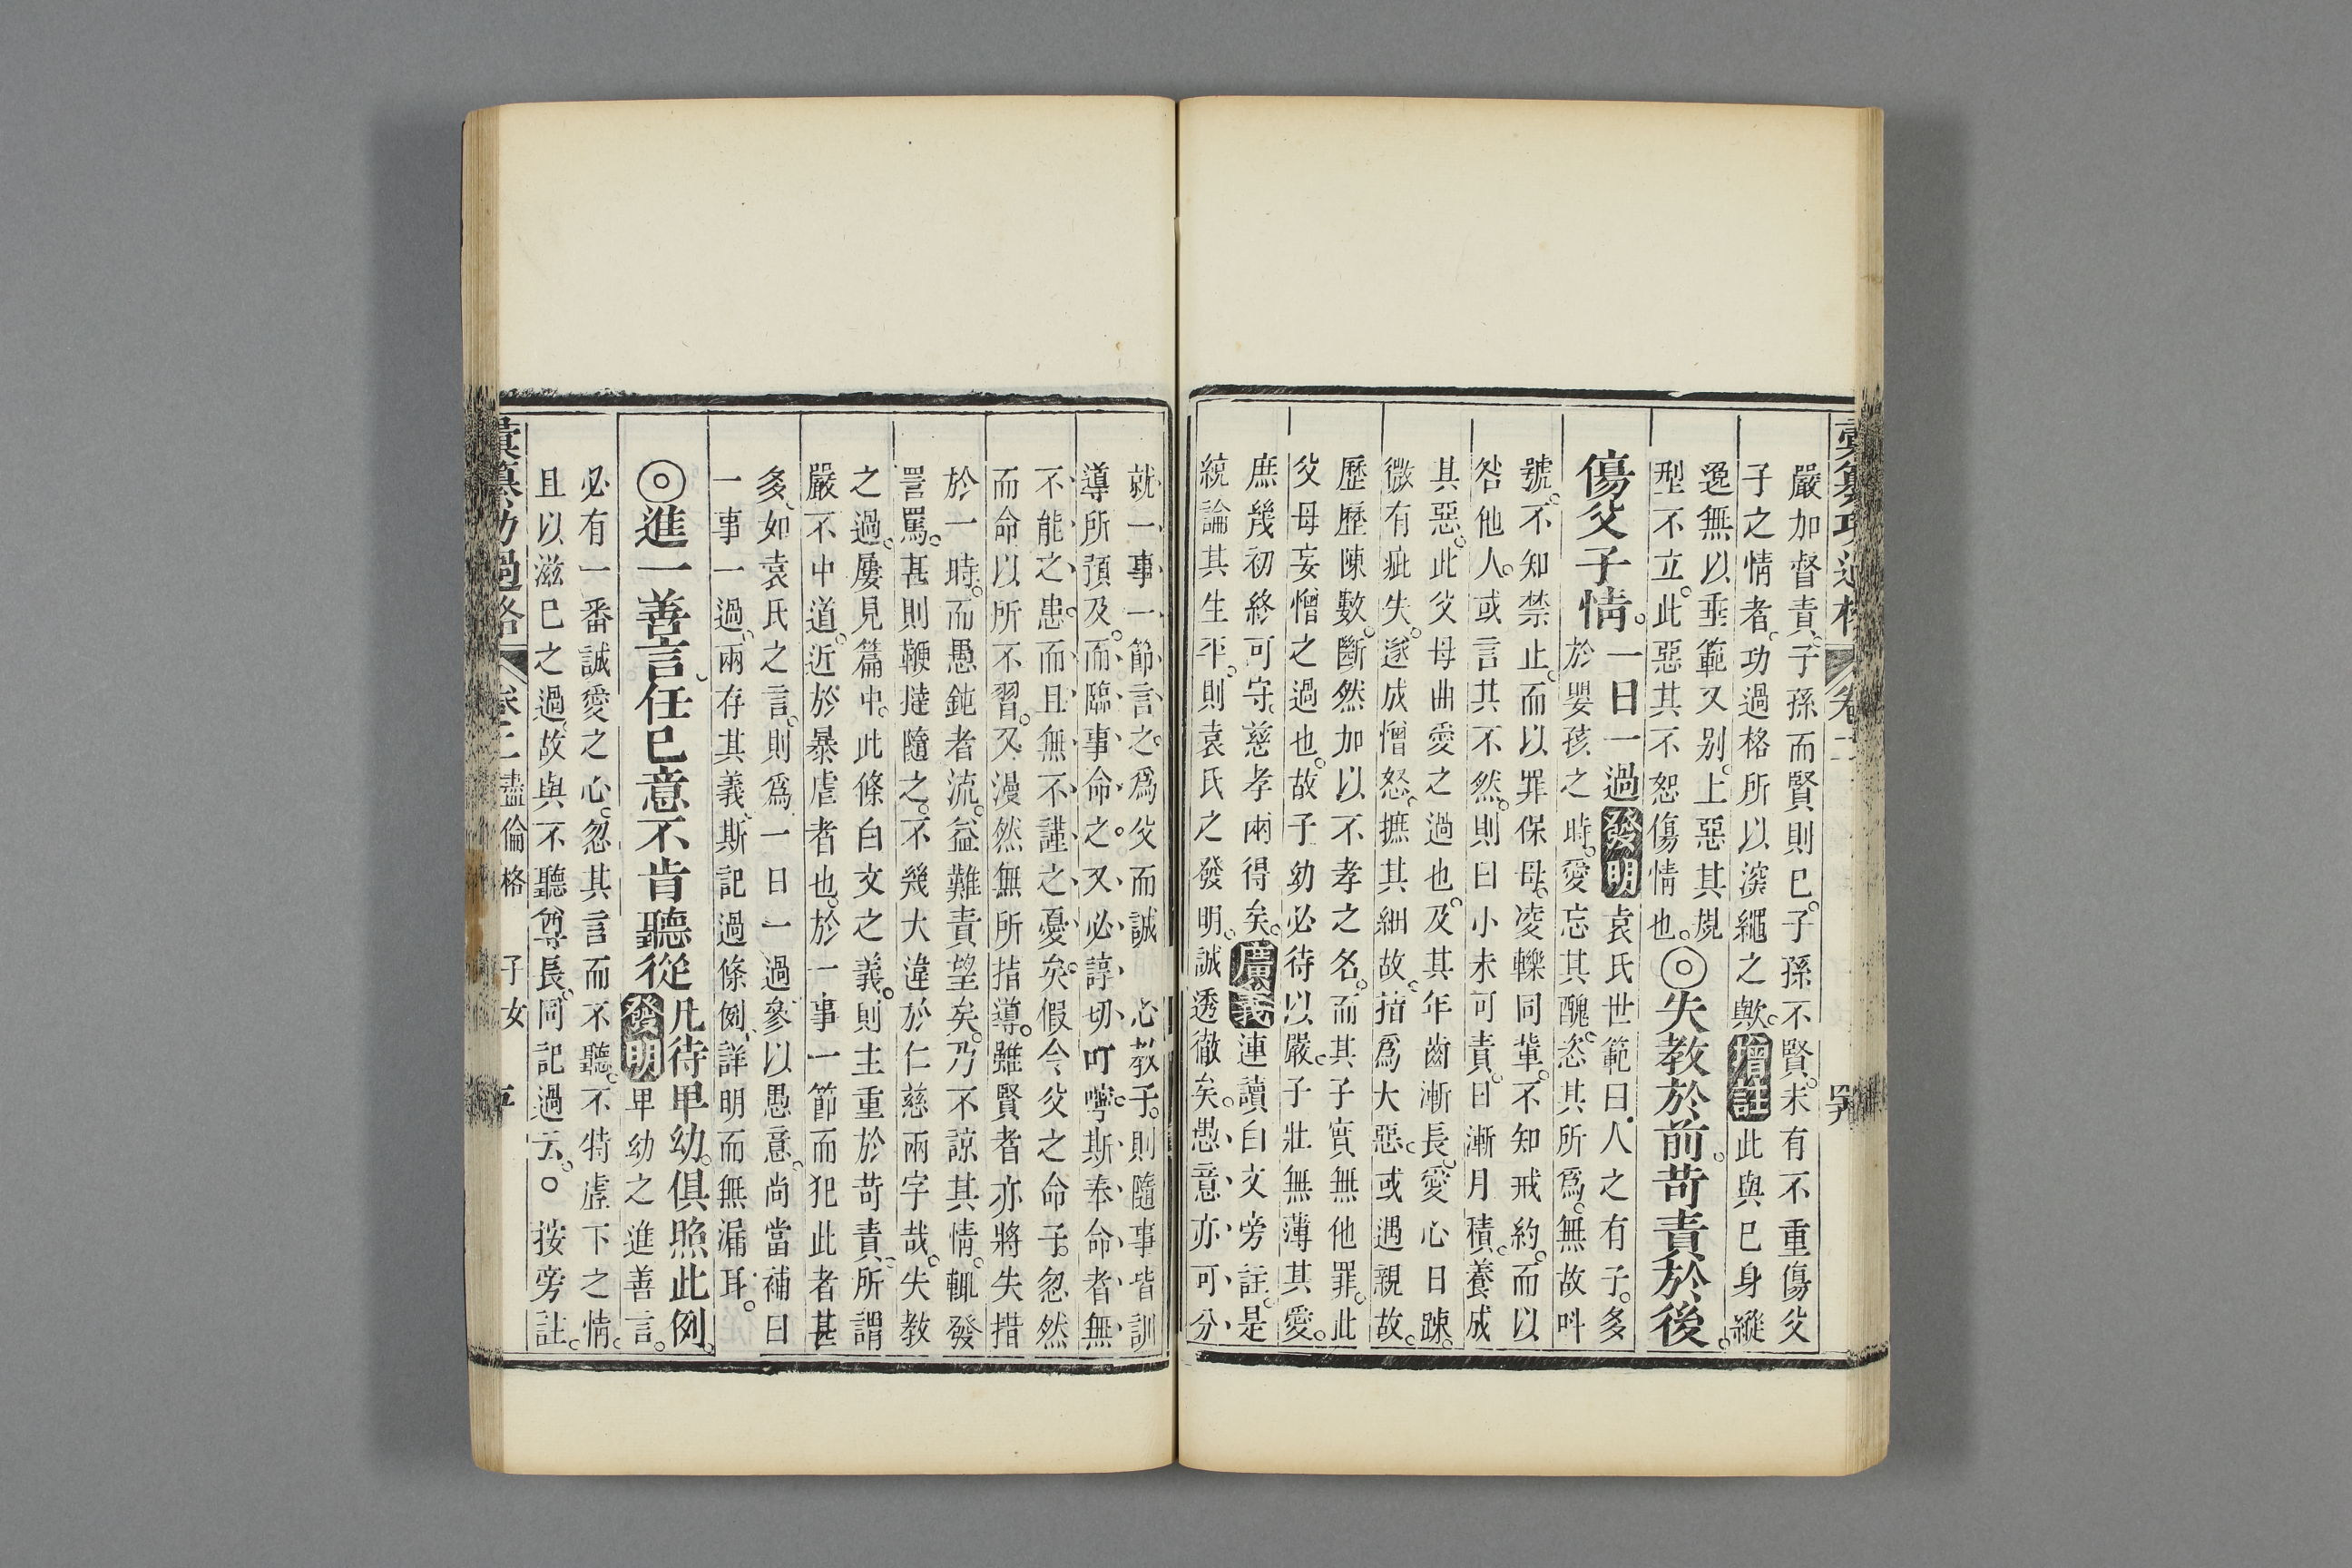 彙纂功過格 卷二
嚴加督責。子孫而賢則已。子孫不賢。未有不重傷父
子之情者。功過格所以深繩之歟。增註此與已身縱
逸無以垂範又别。上惡其規
型不立。此惡其不恕傷情也。◎失教於前。苛責於後。
傷父子情。一日一過發明袁氏世範曰。人之有子。多
於嬰孩之時。愛忘其醜。恣其所爲。無故呌
號。不知禁止。而以罪保母。凌轢同輩。不知戒約。而以
咎他人。或言其不然。則曰小未可責。日漸月積。養成
其惡。此父母曲愛之過也。及其年齒漸長。愛心日踈。
微有疵失。遂成憎怒。摭其細故。指爲大惡。或遇親故。
歷歷陳數。斷然加以不孝之名。而其子實無他罪。此
父母妄憎之過也。故子幼必待以嚴。子壯無薄其愛。
庶幾初終可守。慈孝兩得矣。廣義連讀白文旁註。是
統論其生平。則袁氏之發明。誠透徹矣。愚意亦可分
就一事一節言之。爲父而誠心教子。則隨事皆訓
導所預及。而臨事命之。又必諄切叮嚀。斯奉命者無
不能之患。而且無不謹之憂矣。假令父之命子。忽然
而命以所不習。又漫然無所指導。雖賢者亦將失措
於一時。而愚鈍者流。益難責望矣。乃不諒其情。輒發
詈罵。甚則鞭撻隨之。不幾大違於仁慈兩字哉。失教
之過。屢見篇中。此條白文之義。則主重於苛責。所謂
嚴不中道。近於暴虐者也。於一事一節而犯此者甚
多。如袁氏之言。則爲一日一過。參以愚意。尚當補曰
一事一過。兩存其義。斯記過條例。詳明而無漏耳。
◎進一善言。任已意不肯聽從凡待卑幼。俱照此例。
發明卑幼之進善言。
必有一番誠愛之心。忽其言而不聽。不特虛下之情。
且以滋已之過。故與不聽尊長。同記過云。○按旁註。
彙纂功過格 卷二 盡倫格 子女